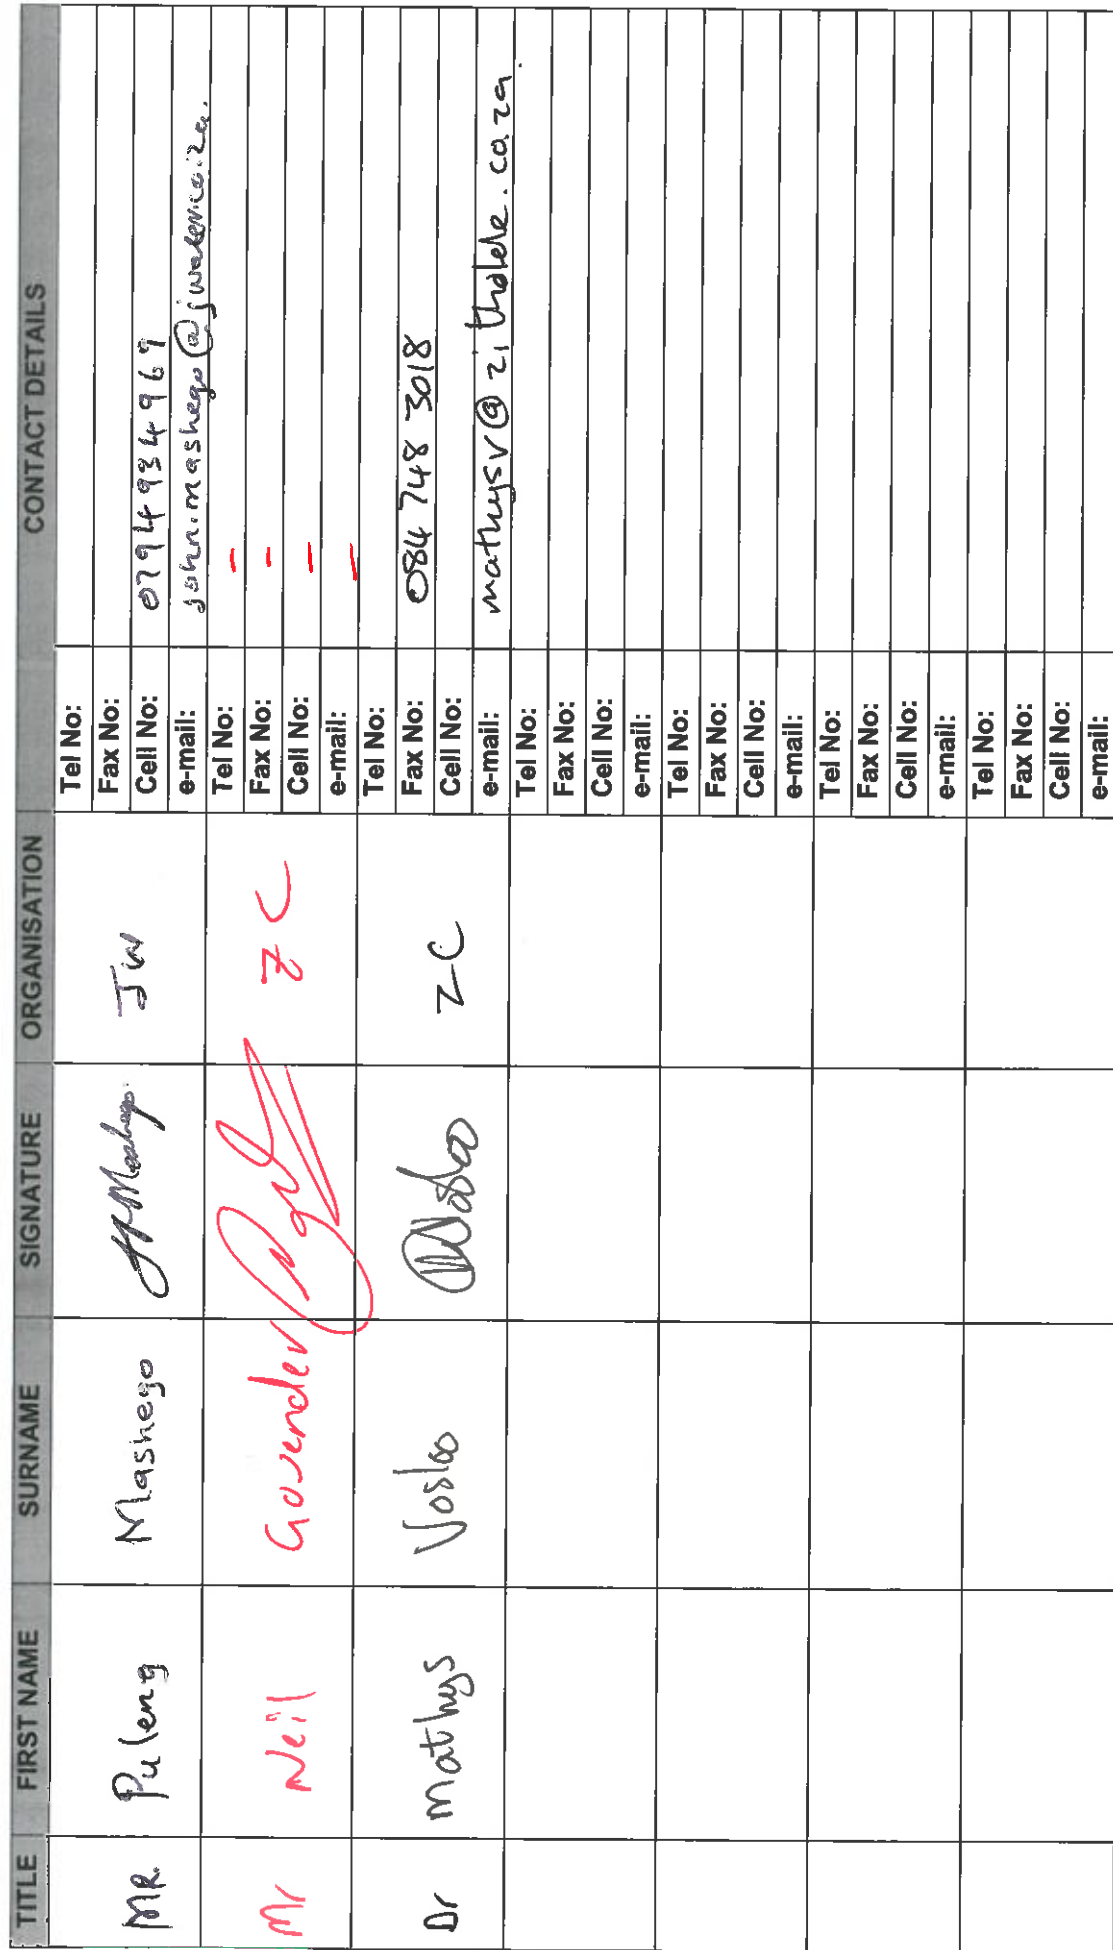 TITLE FIRST NAME SURNAME SIGNATURE ORGANISATION CONTACT DETAILS
MR. Puleng Mashego JW
Tel No:
Fax No:
Cell No: 0794934969
e-mail: john.mashego@jwater.co.za.
Mr Neil Govender ZC
Tel No: -
Fax No: -
Cell No: -
e-mail: -
Dr Mathys Vosloo Vosloo ZC
Tel No:
Fax No: 084 748 3018
Cell No:
e-mail: mathysv@zitholele.co.za.
Tel No:
Fax No:
Cell No:
e-mail:
Tel No:
Fax No:
Cell No:
e-mail:
Tel No:
Fax No:
Cell No:
e-mail:
Tel No:
Fax No:
Cell No:
e-mail: